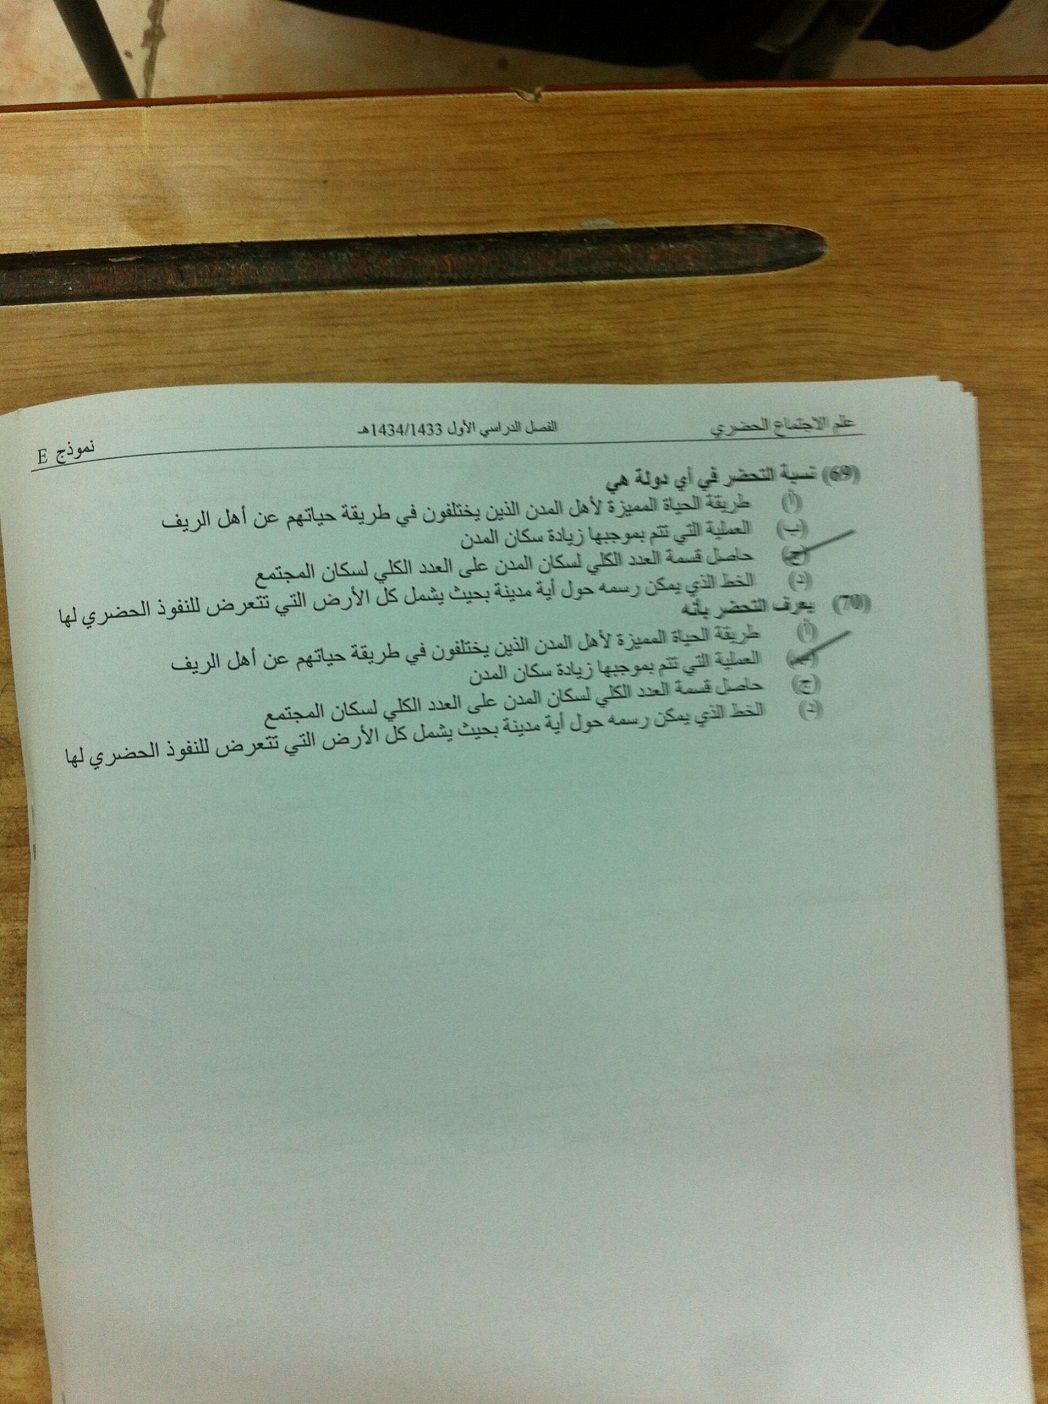 علم الاجتماع الحضري الفصل الدراسي الأول 1434/1433هـ نموذج E
(69) نسبة التحضر في أي دولة هي
(أ) طريقة الحياة المميزة لأهل المدن الذين يختلفون في طريقة حياتهم عن أهل الريف
(ب) العملية التي تتم بموجبها زيادة سكان المدن
(ج) حاصل قسمة العدد الكلي لسكان المدن على العدد الكلي لسكان المجتمع
(د) الخط الذي يمكن رسمه حول أية مدينة بحيث يشمل كل الأرض التي تتعرض للنفوذ الحضري لها
(70) يعرف التحضر بأنه
(أ) طريقة الحياة المميزة لأهل المدن الذين يختلفون في طريقة حياتهم عن أهل الريف
(ب) العملية التي تتم بموجبها زيادة سكان المدن
(ج) حاصل قسمة العدد الكلي لسكان المدن على العدد الكلي لسكان المجتمع
(د) الخط الذي يمكن رسمه حول أية مدينة بحيث يشمل كل الأرض التي تتعرض للنفوذ الحضري لها